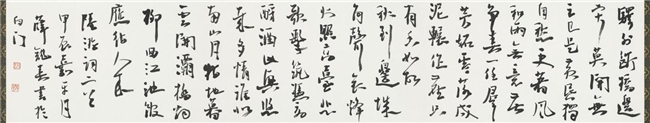 驛外斷橋邊
寂寞開無
主已是黃昏獨
自愁更著風
和雨無意苦
爭春一任群
芳妒零落成
泥輾作塵只
有香如故
秋到邊城
角聲哀烽
火照高臺悲
歌擊筑憑高
酹酒此興悠
哉多情誰似
南山月特地暮
雲開灞橋烟
柳曲江池館
應待人來
陸游詞二首
甲辰嘉平月
薛龍春書於
白門